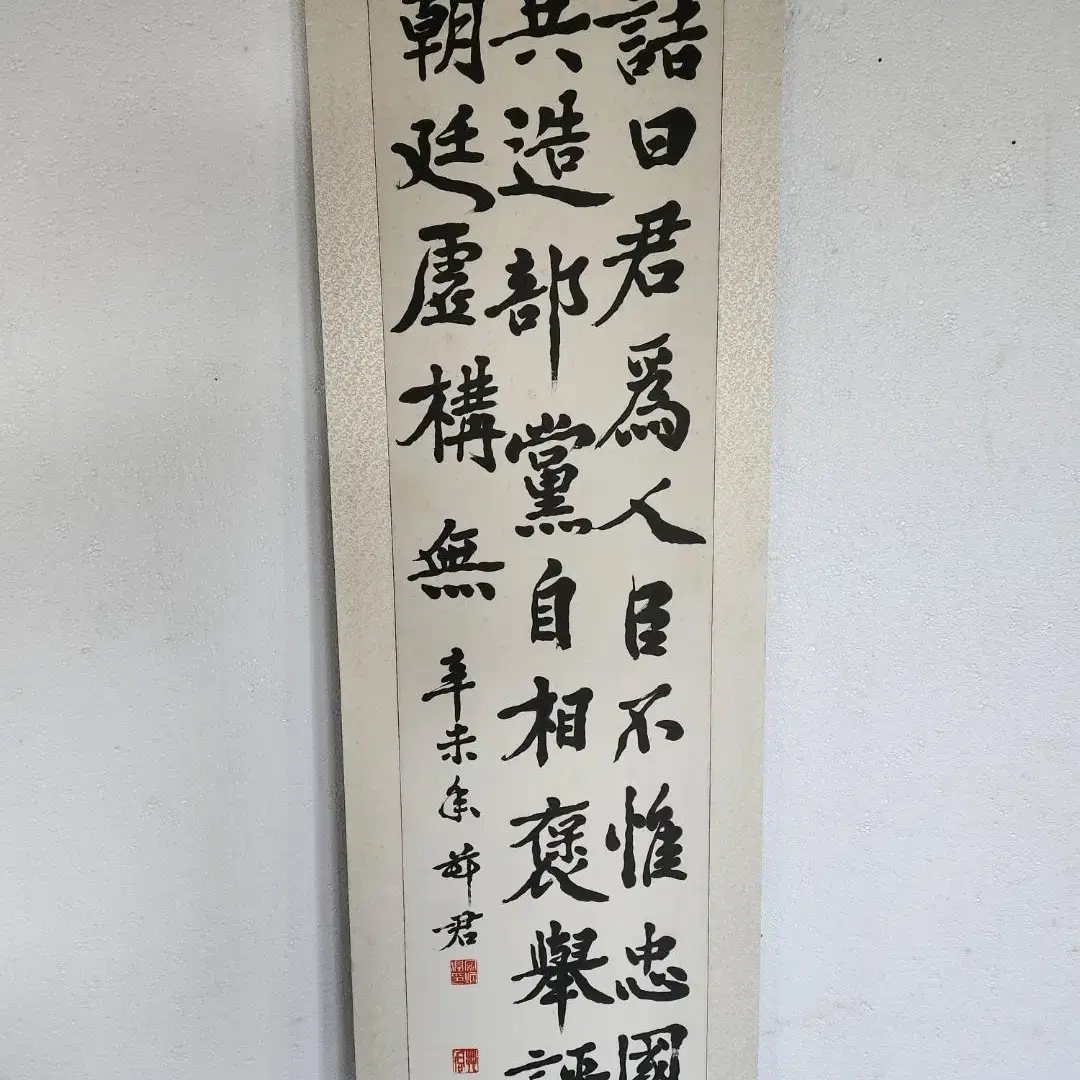 詰曰君爲人臣不惟忠國
共造部黨自相褒舉評
朝廷虛構無
辛未冬 薛君